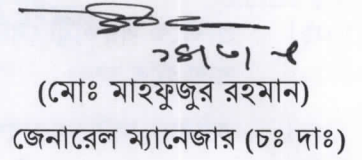 (মোঃ মাহফুজুর রহমান)
জেনারেল ম্যানেজার (চঃ দাঃ)